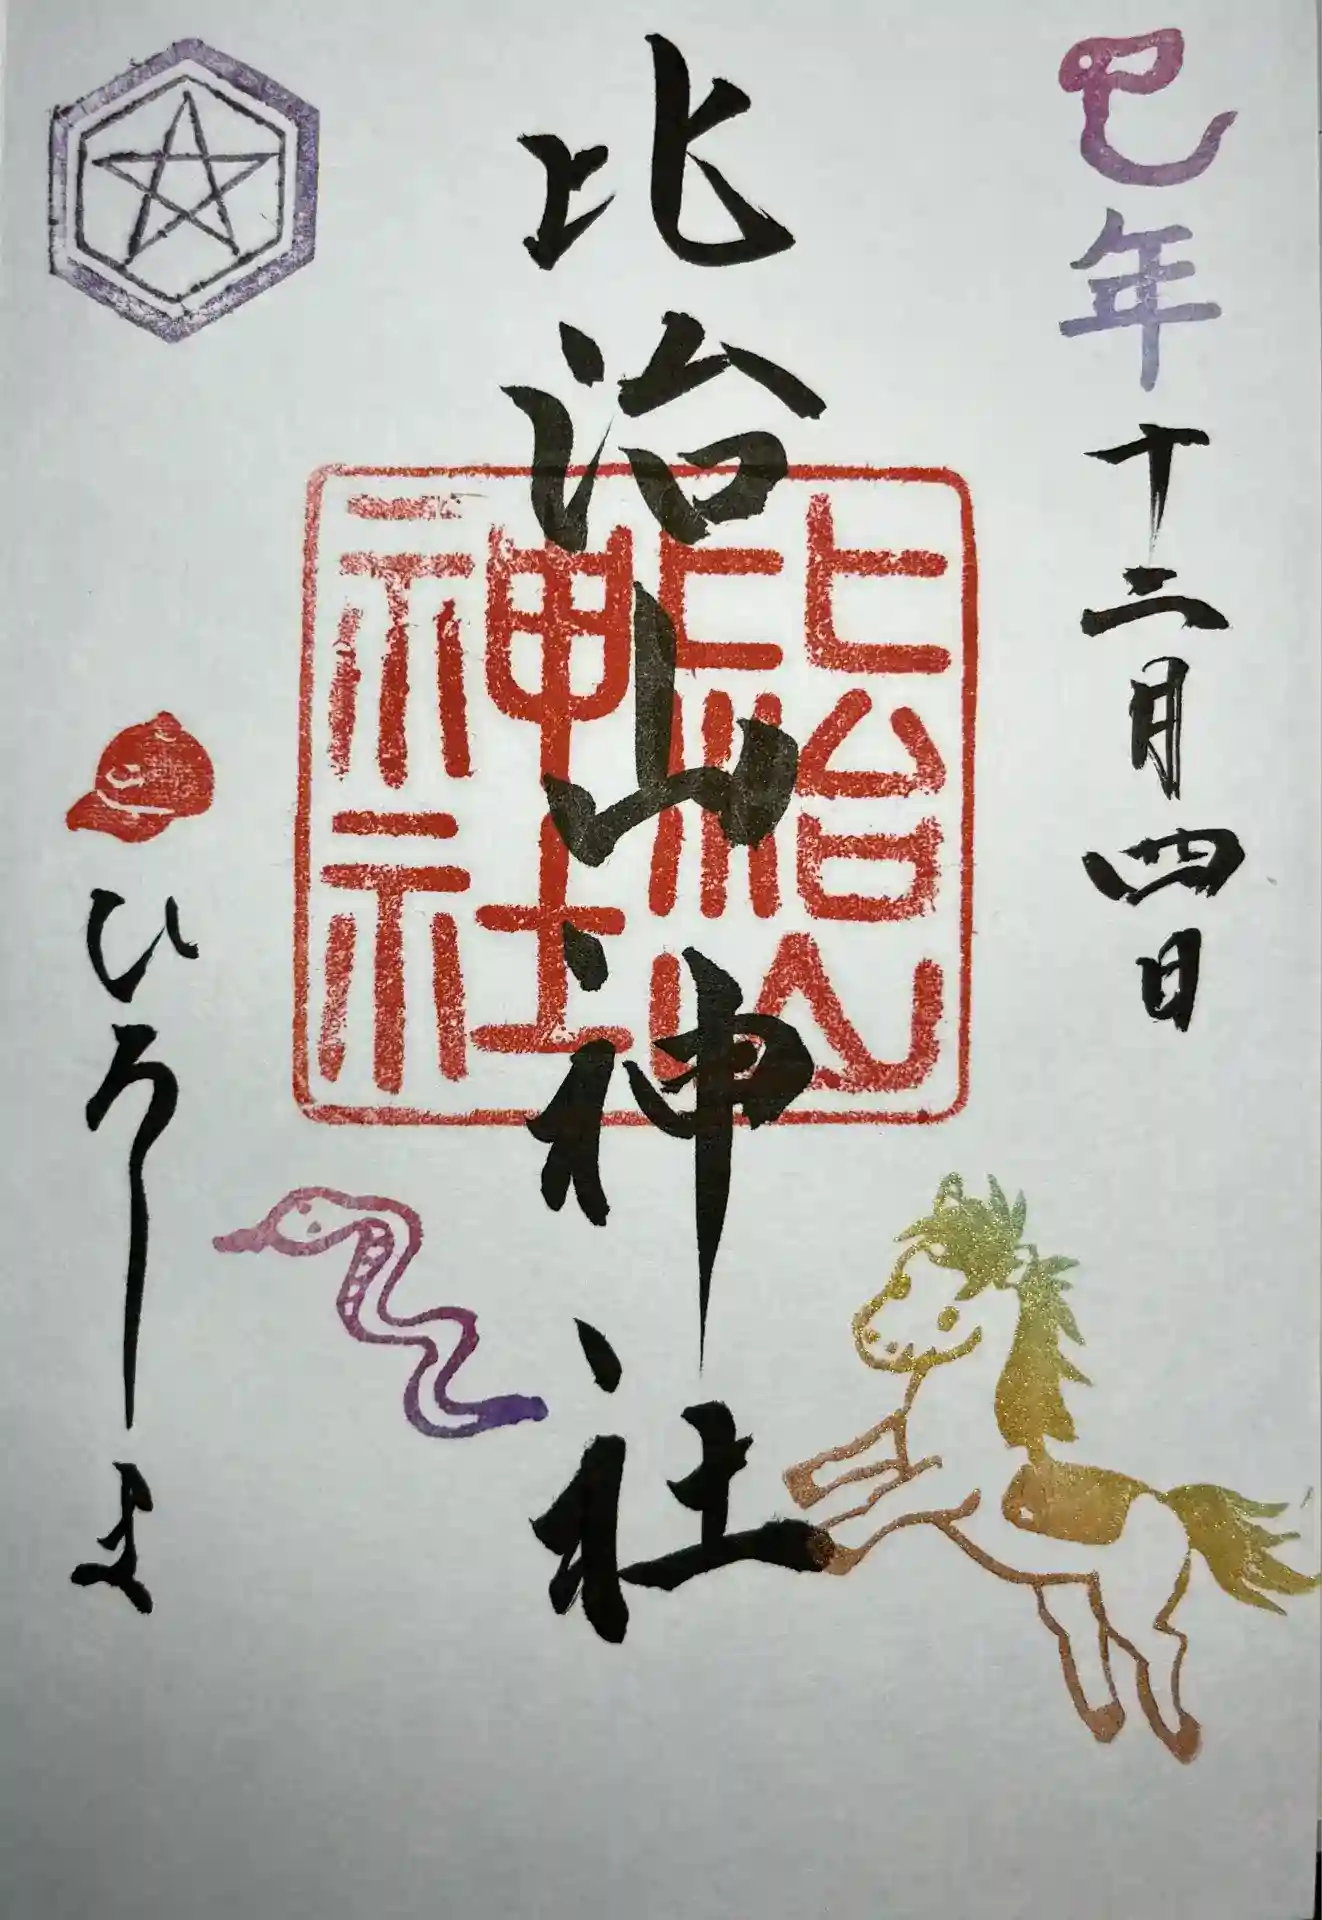 巳年十二月四日
比治山神社
比治山神社
ひろしま